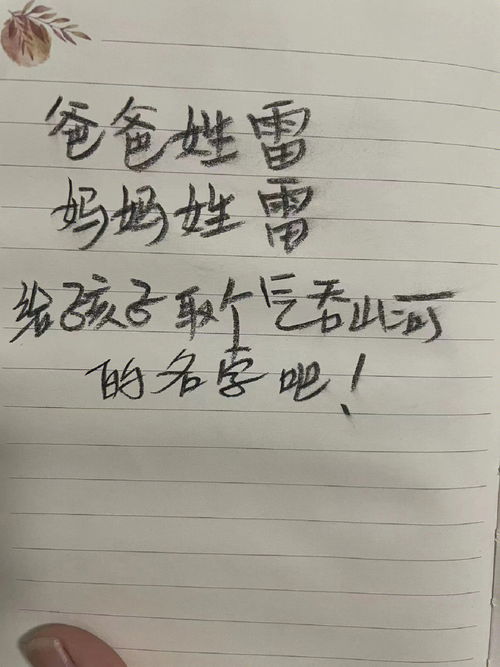 爸爸姓雷
妈妈姓雷
给孩子取个气吞山河
的名字吧！